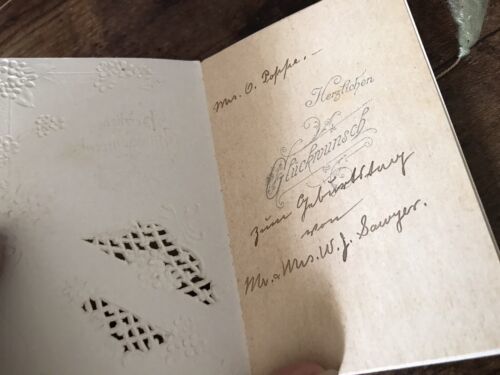 Mrs. O. Poppe. –
Herzlichen
Glückwunsch
zum Geburtstag
von
Mr. & Mrs. W. J. Sawyer.